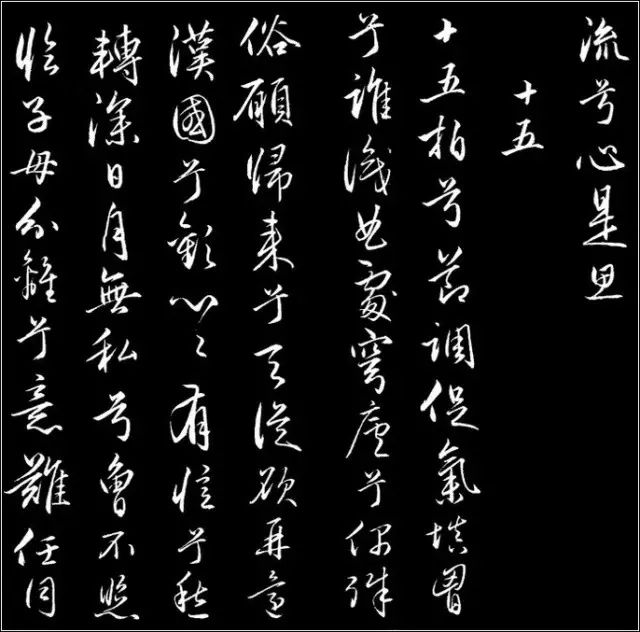 流兮心是思
十五
十五拍兮節調促氣填胷
兮誰識曲處穹廬兮偶殊
俗願歸来兮天從欲再還
漢國兮歡心〻有憶兮愁
轉深日月無私兮曾不照
臨子母分離兮意難任同